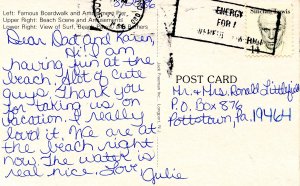 Left: Famous Boardwalk and Amusement Pier
Upper: Beach Scene and Amusements
Lower: View of Surf, Beach and
Dear Dad and Karen,
Hi! I am
having fun at the
beach. Alot of cute
guys. Thank you
for taking us on
vacation. I really
loved it. We are at
the beach right
now. The water is
real nice. Love
Julie
ENERGY
FOR
POST CARD
Mr. & Mrs. Ronald Littlefield
P.O. Box 876
Pottstown, Pa. 19464